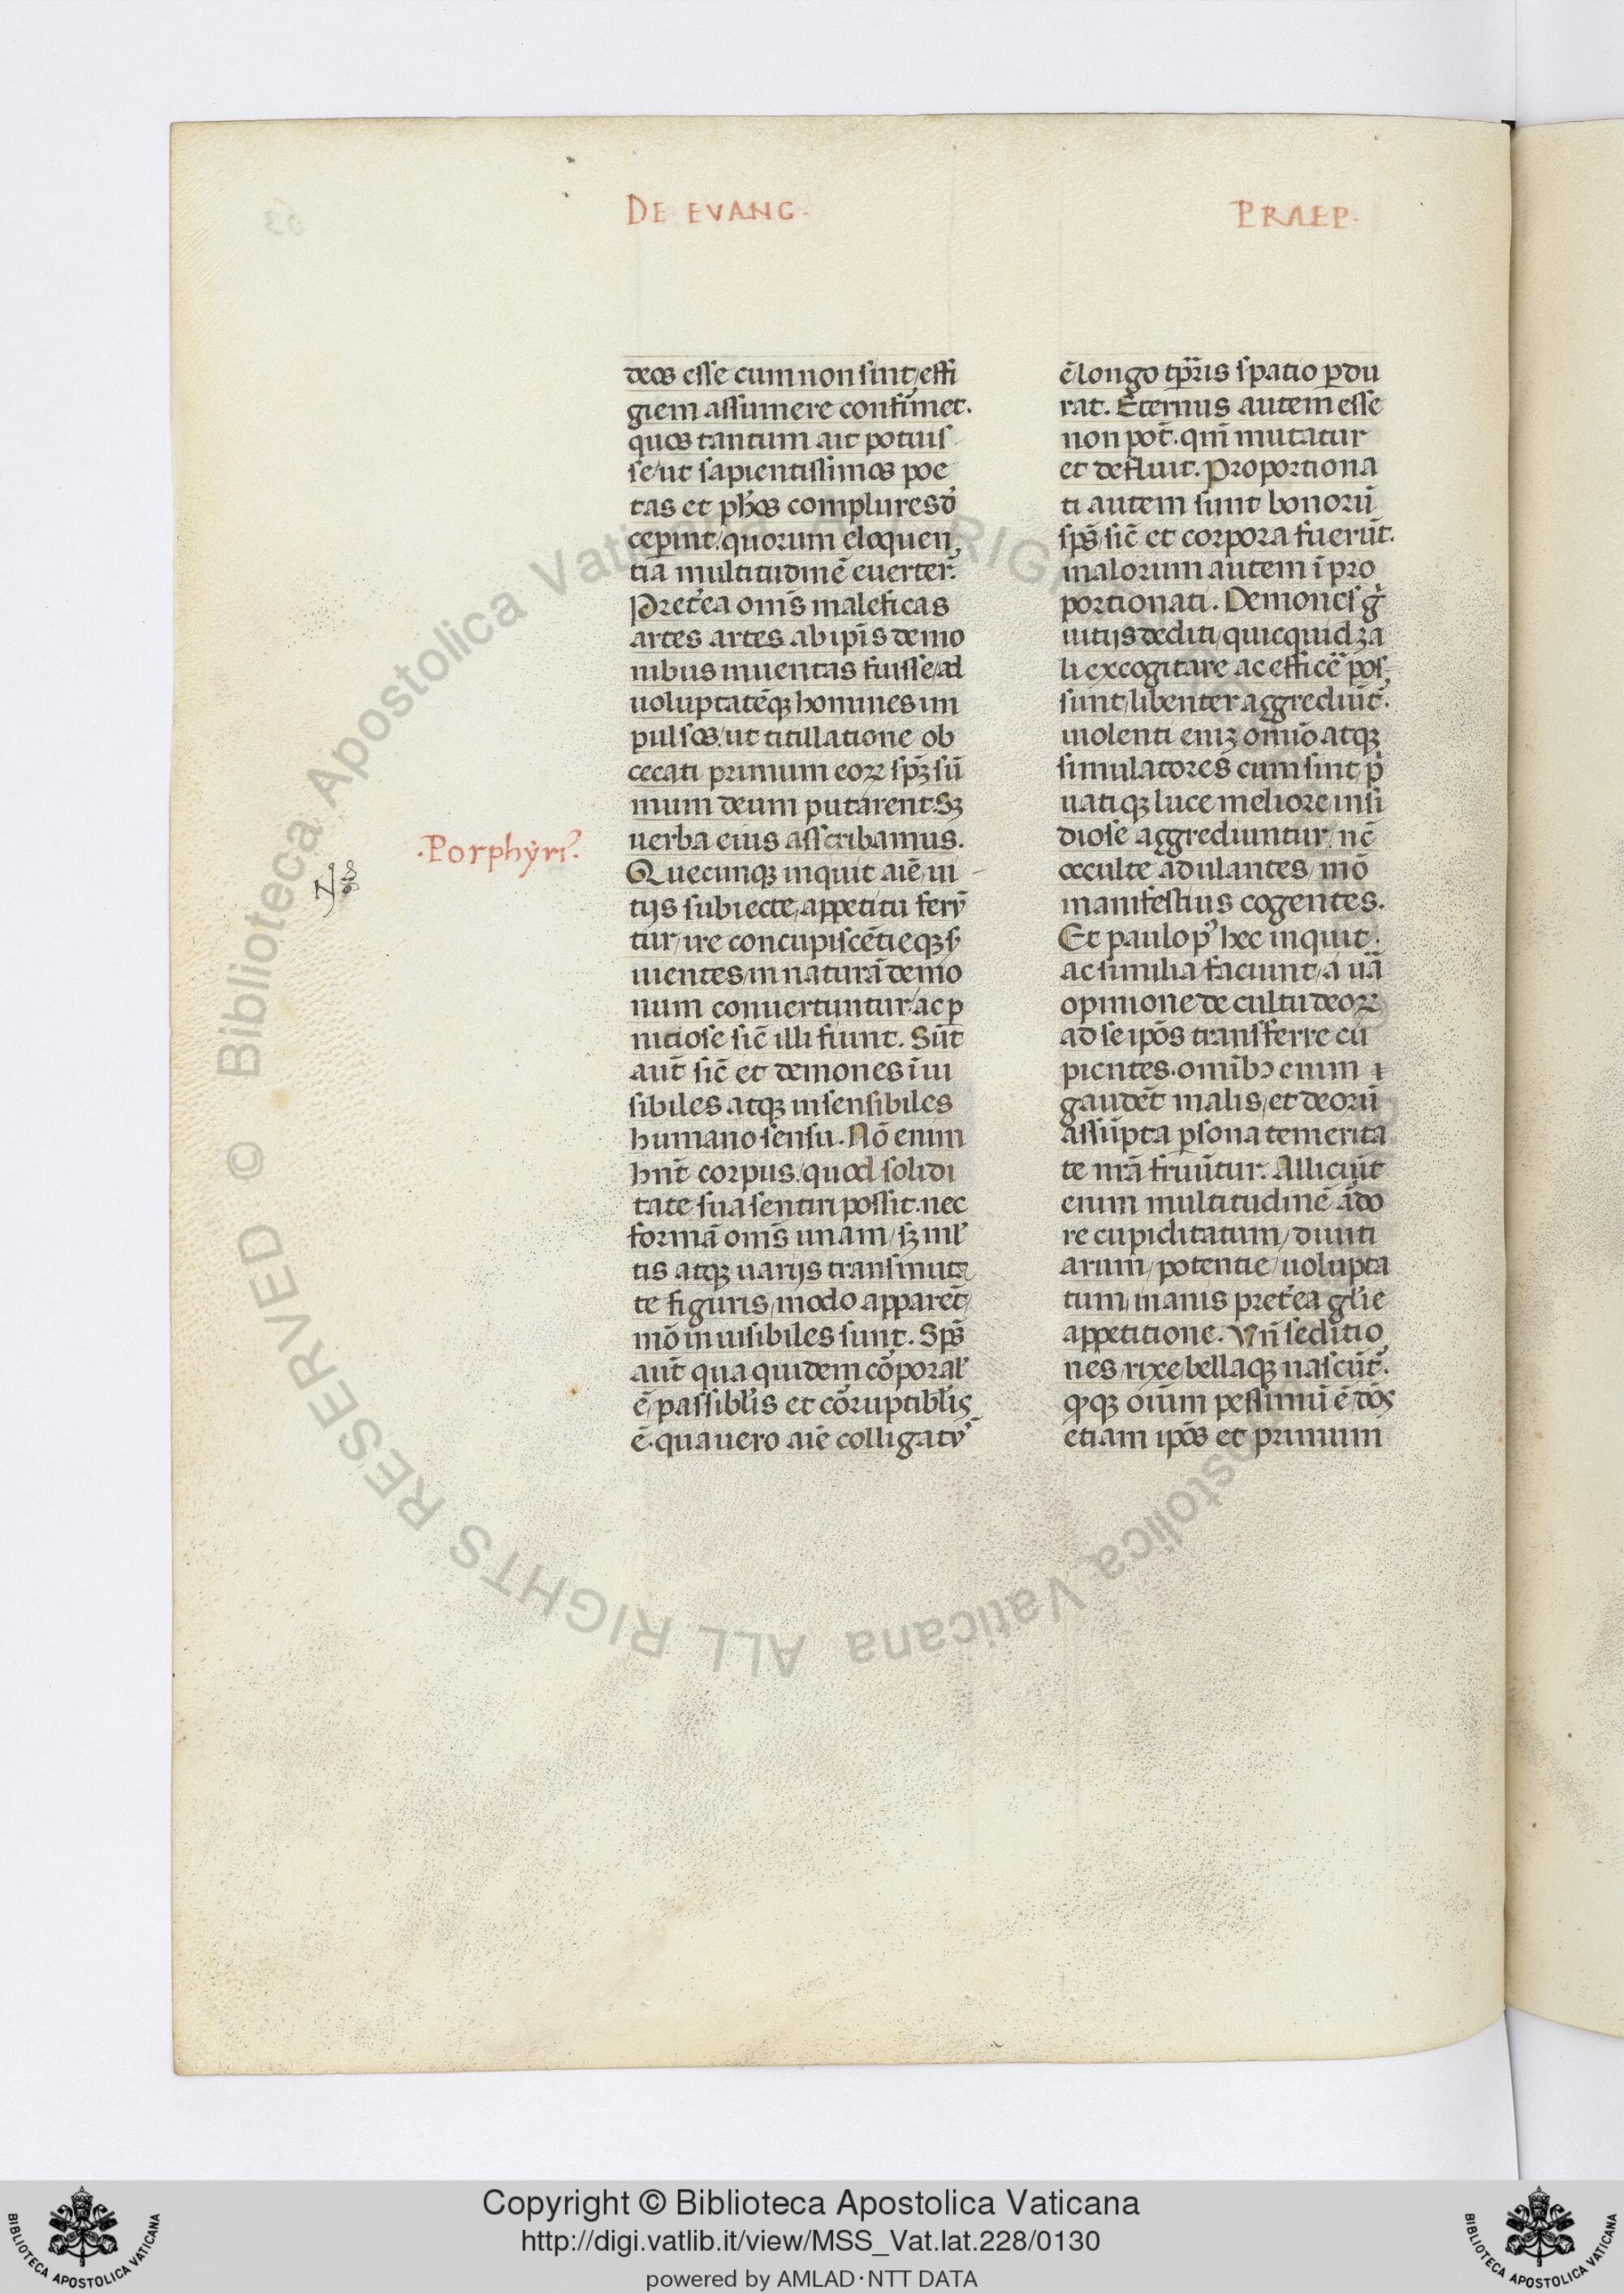 DE EVANG.
PRAEP.
deos esse cum non sint/effi
giem assumere confirmet.
quos tantum ait potuis
se/ut sapientissimos poe
tas et ph̄os complures d̄
ceperint/quorum eloquen
tiā multitudinē euerter̄.
Preterea om̄s maleficas
artes artes ab ip̄is demo
nibus inuentas fuisse/ad
uoluptatēqꝫ homines im
pulsos/ut titillatione ob
cecati primum eoꝝ sp̄ꝫ sū
mum deum putarent. Sꝫ
uerba eius asscribamus.
.Porphyri⁹.
Quecunqꝫ inquit aīe/ui
tijs subiecte/appetitu ferū
tur/ire concupiscētieqꝫ s̄
uientes/in naturā demo
num conuertuntur/ac ꝑ
niciose sic̄ illi fiunt. Sūt
aūt sic̄ et demones īui
sibiles atqꝫ insensibiles
humano sensu. Nō enim
hn̄t corpus/quod solidi
tate sua sentiri possit. nec
formā om̄s unam/sꝫ ml̄
tis atqꝫ uarijs transmuta
te figuris/modo apparēt/
mō inuisibiles sunt. Sp̄s
aūt qua quidem cōporal̄
ē/passibl̄is et cōruptibl̄is
ē. qua uero aīe colligatꝰ
ē/longo tp̄ris spatio ꝑdu
rat. Eternus autem esse
non pot̄. qm̄ mutatur
et defluit. Proportiona
ti autem sunt bonorū
sp̄s/sic̄ et corpora fuerūt.
malorum autem īpro
portionati. Demones g̊
uitijs dediti/quicquid ma
li excogitare ac efficēre pos
sunt/libenter aggrediūt̄.
uiolenti enīꝫ om̄io atqꝫ
simulatores cum sint/p̄
uatiqꝫ luce meliore/insi
diose aggrediuntur/nc̄
occulte adulantes/mō
manifestius cogentes.
Et paulo p⁹ hec inquit.
ac similia faciunt/a uā
opinione de cultu deoꝝ
ad se ip̄os transferre cu
pientes. omībꝰ enim ⁊
gaudēt malis/et deorū
assūpta ꝑsona temerita
te nr̄a fruūtur. Alliciūt
enim multitudinē ādo
re cupiditatum/diuiti
arum/potentie/uolupta
tum/inanis preterea gl̄ie
appetitione. Vn̄ seditio
nes/rixe/bellaqꝫ nascūt̄.
qꝫ oīum pessimū ē/dōs
etiam ip̄os et primum
Copyright © Biblioteca Apostolica Vaticana
http://digi.vatlib.it/view/MSS_Vat.lat.228/0130
powered by AMLAD·NTT DATA
© Biblioteca Apostolica Vaticana ALL RIGHTS RESERVED
BIBLIOTECA APOSTOLICA VATICANA
BIBLIOTECA APOSTOLICA VATICANA